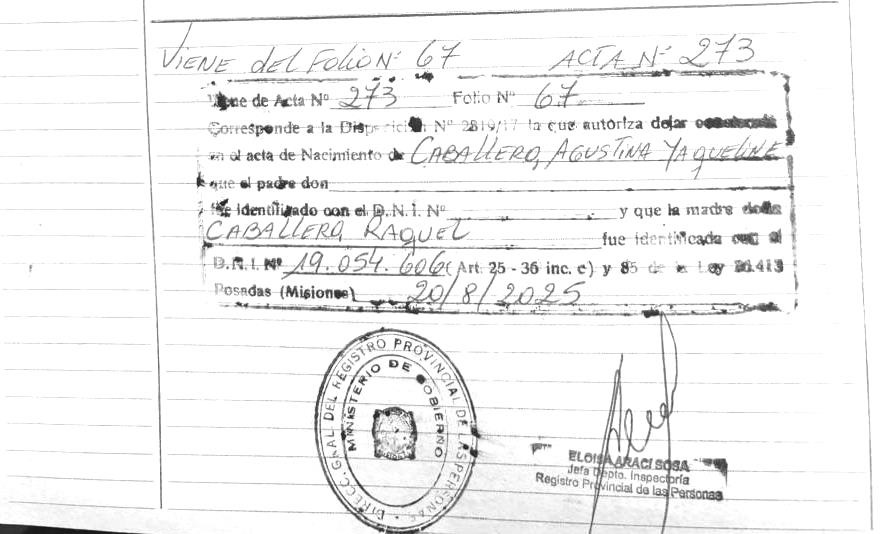 VIENE del FOLIO Nº 67 ACTA Nº 273
Viene de Acta Nº 273 Folio Nº 67
Corresponde a la Disposición Nº 2810/17 la que autoriza dejar
en el acta de Nacimiento de CABALLERO, AGUSTINA YAQUELINE
que el padre don
fue identificado con el D.N.I. Nº y que la madre doña
CABALLERO, RAQUEL fue identificada con el
D.N.I. Nº 19.054.606 (Art. 25 - 36 inc. c) y 85 de la Ley 26.413
Posadas (Misiones) 20/8/2025
DIRECC. GRAL. DEL REGISTRO PROVINCIAL DE LAS PERSONAS
MINISTERIO DE GOBIERNO
ELOISA ARACI SOSA
Jefa Dpto. Inspectoría
Registro Provincial de las Personas